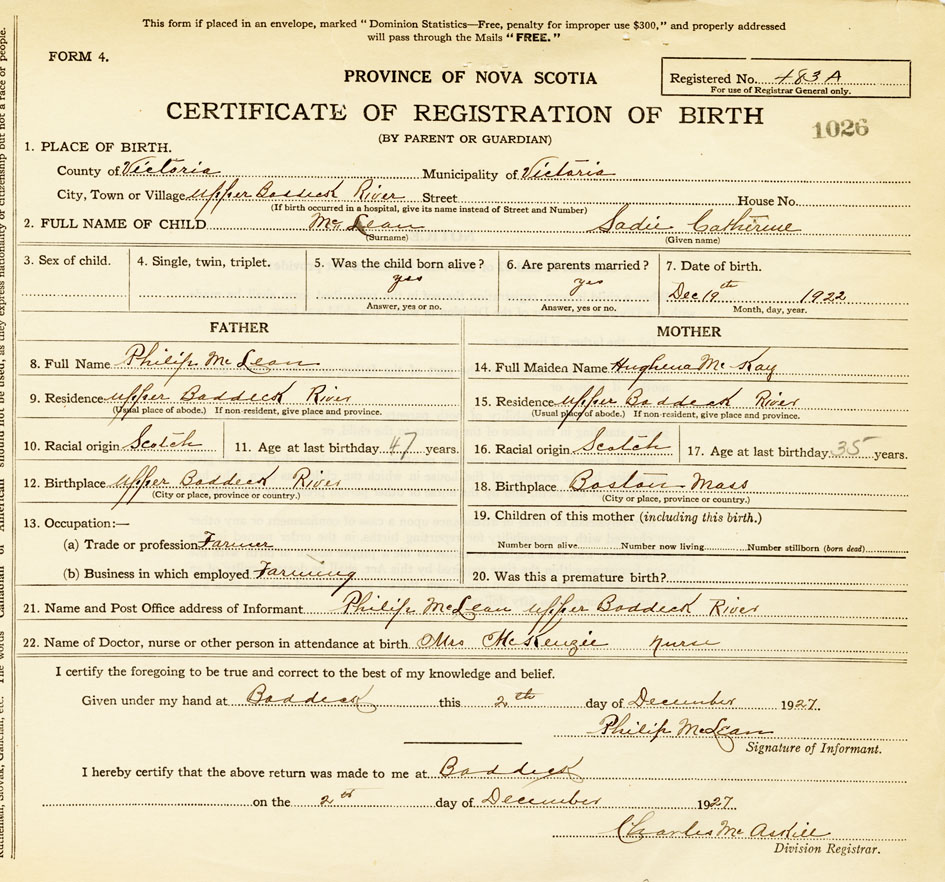 This form if placed in an envelope, marked "Dominion Statistics—Free, penalty for improper use $300," and properly addressed
will pass through the Mails "FREE."
FORM 4.
PROVINCE OF NOVA SCOTIA
Registered No. 483 A
For use of Registrar General only.
CERTIFICATE OF REGISTRATION OF BIRTH
1026
(BY PARENT OR GUARDIAN)
1. PLACE OF BIRTH.
County of Victoria Municipality of Victoria
City, Town or Village Upper Baddeck River Street House No.
(If birth occurred in a hospital, give its name instead of Street and Number)
2. FULL NAME OF CHILD McLean Sadie Catherine
(Surname) (Given name)
3. Sex of child. 4. Single, twin, triplet. 5. Was the child born alive? 6. Are parents married? 7. Date of birth.
yes yes
Dec 19th 1922
Answer, yes or no. Answer, yes or no. Month, day, year.
FATHER
8. Full Name Philip McLean
9. Residence Upper Baddeck River
(Usual place of abode.) If non-resident, give place and province.
10. Racial origin Scotch 11. Age at last birthday 47 years.
12. Birthplace Upper Baddeck River
(City or place, province or country.)
13. Occupation:—
(a) Trade or profession Farmer
(b) Business in which employed Farming
MOTHER
14. Full Maiden Name Hughena McKay
15. Residence Upper Baddeck River
(Usual place of abode.) If non-resident, give place and province.
16. Racial origin Scotch 17. Age at last birthday 35 years.
18. Birthplace Boston Mass
(City or place, province or country.)
19. Children of this mother (including this birth.)
Number born alive Number now living Number stillborn (born dead)
20. Was this a premature birth?
21. Name and Post Office address of Informant Philip McLean Upper Baddeck River
22. Name of Doctor, nurse or other person in attendance at birth Mrs McKenzie Nurse
I certify the foregoing to be true and correct to the best of my knowledge and belief.
Given under my hand at Baddeck this 2th day of December 1927.
Philip McLean
Signature of Informant.
I hereby certify that the above return was made to me at Baddeck
on the 2th day of December 1927
Charles McAskill
Division Registrar.